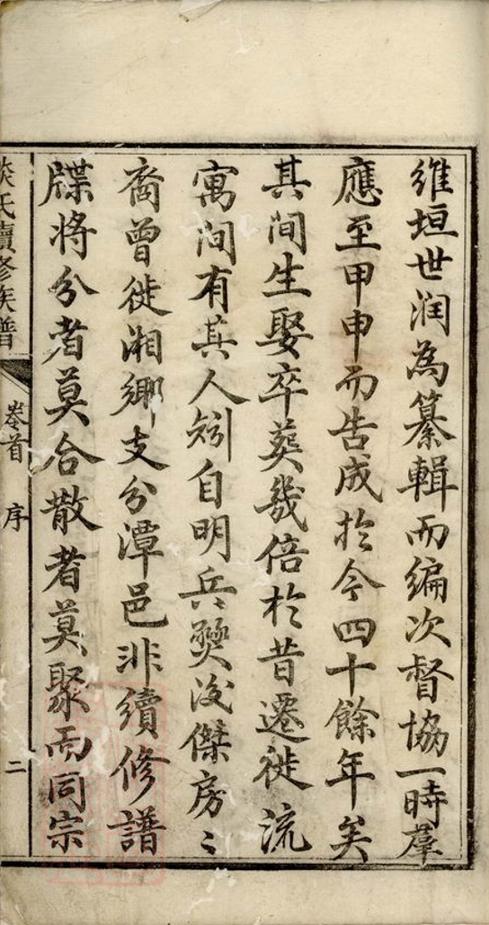 維垣世润為纂輯而編次督協一時羣
應至甲申而告成於今四十餘年矣
其间生娶卒葬幾倍於昔遷徙流
寓间有其人矧自明兵燹後傑房〻
裔曾徙湘鄉支分潭邑非續修譜
牒将分者莫合散者莫聚而同宗
氏續修族譜
卷首 序
二